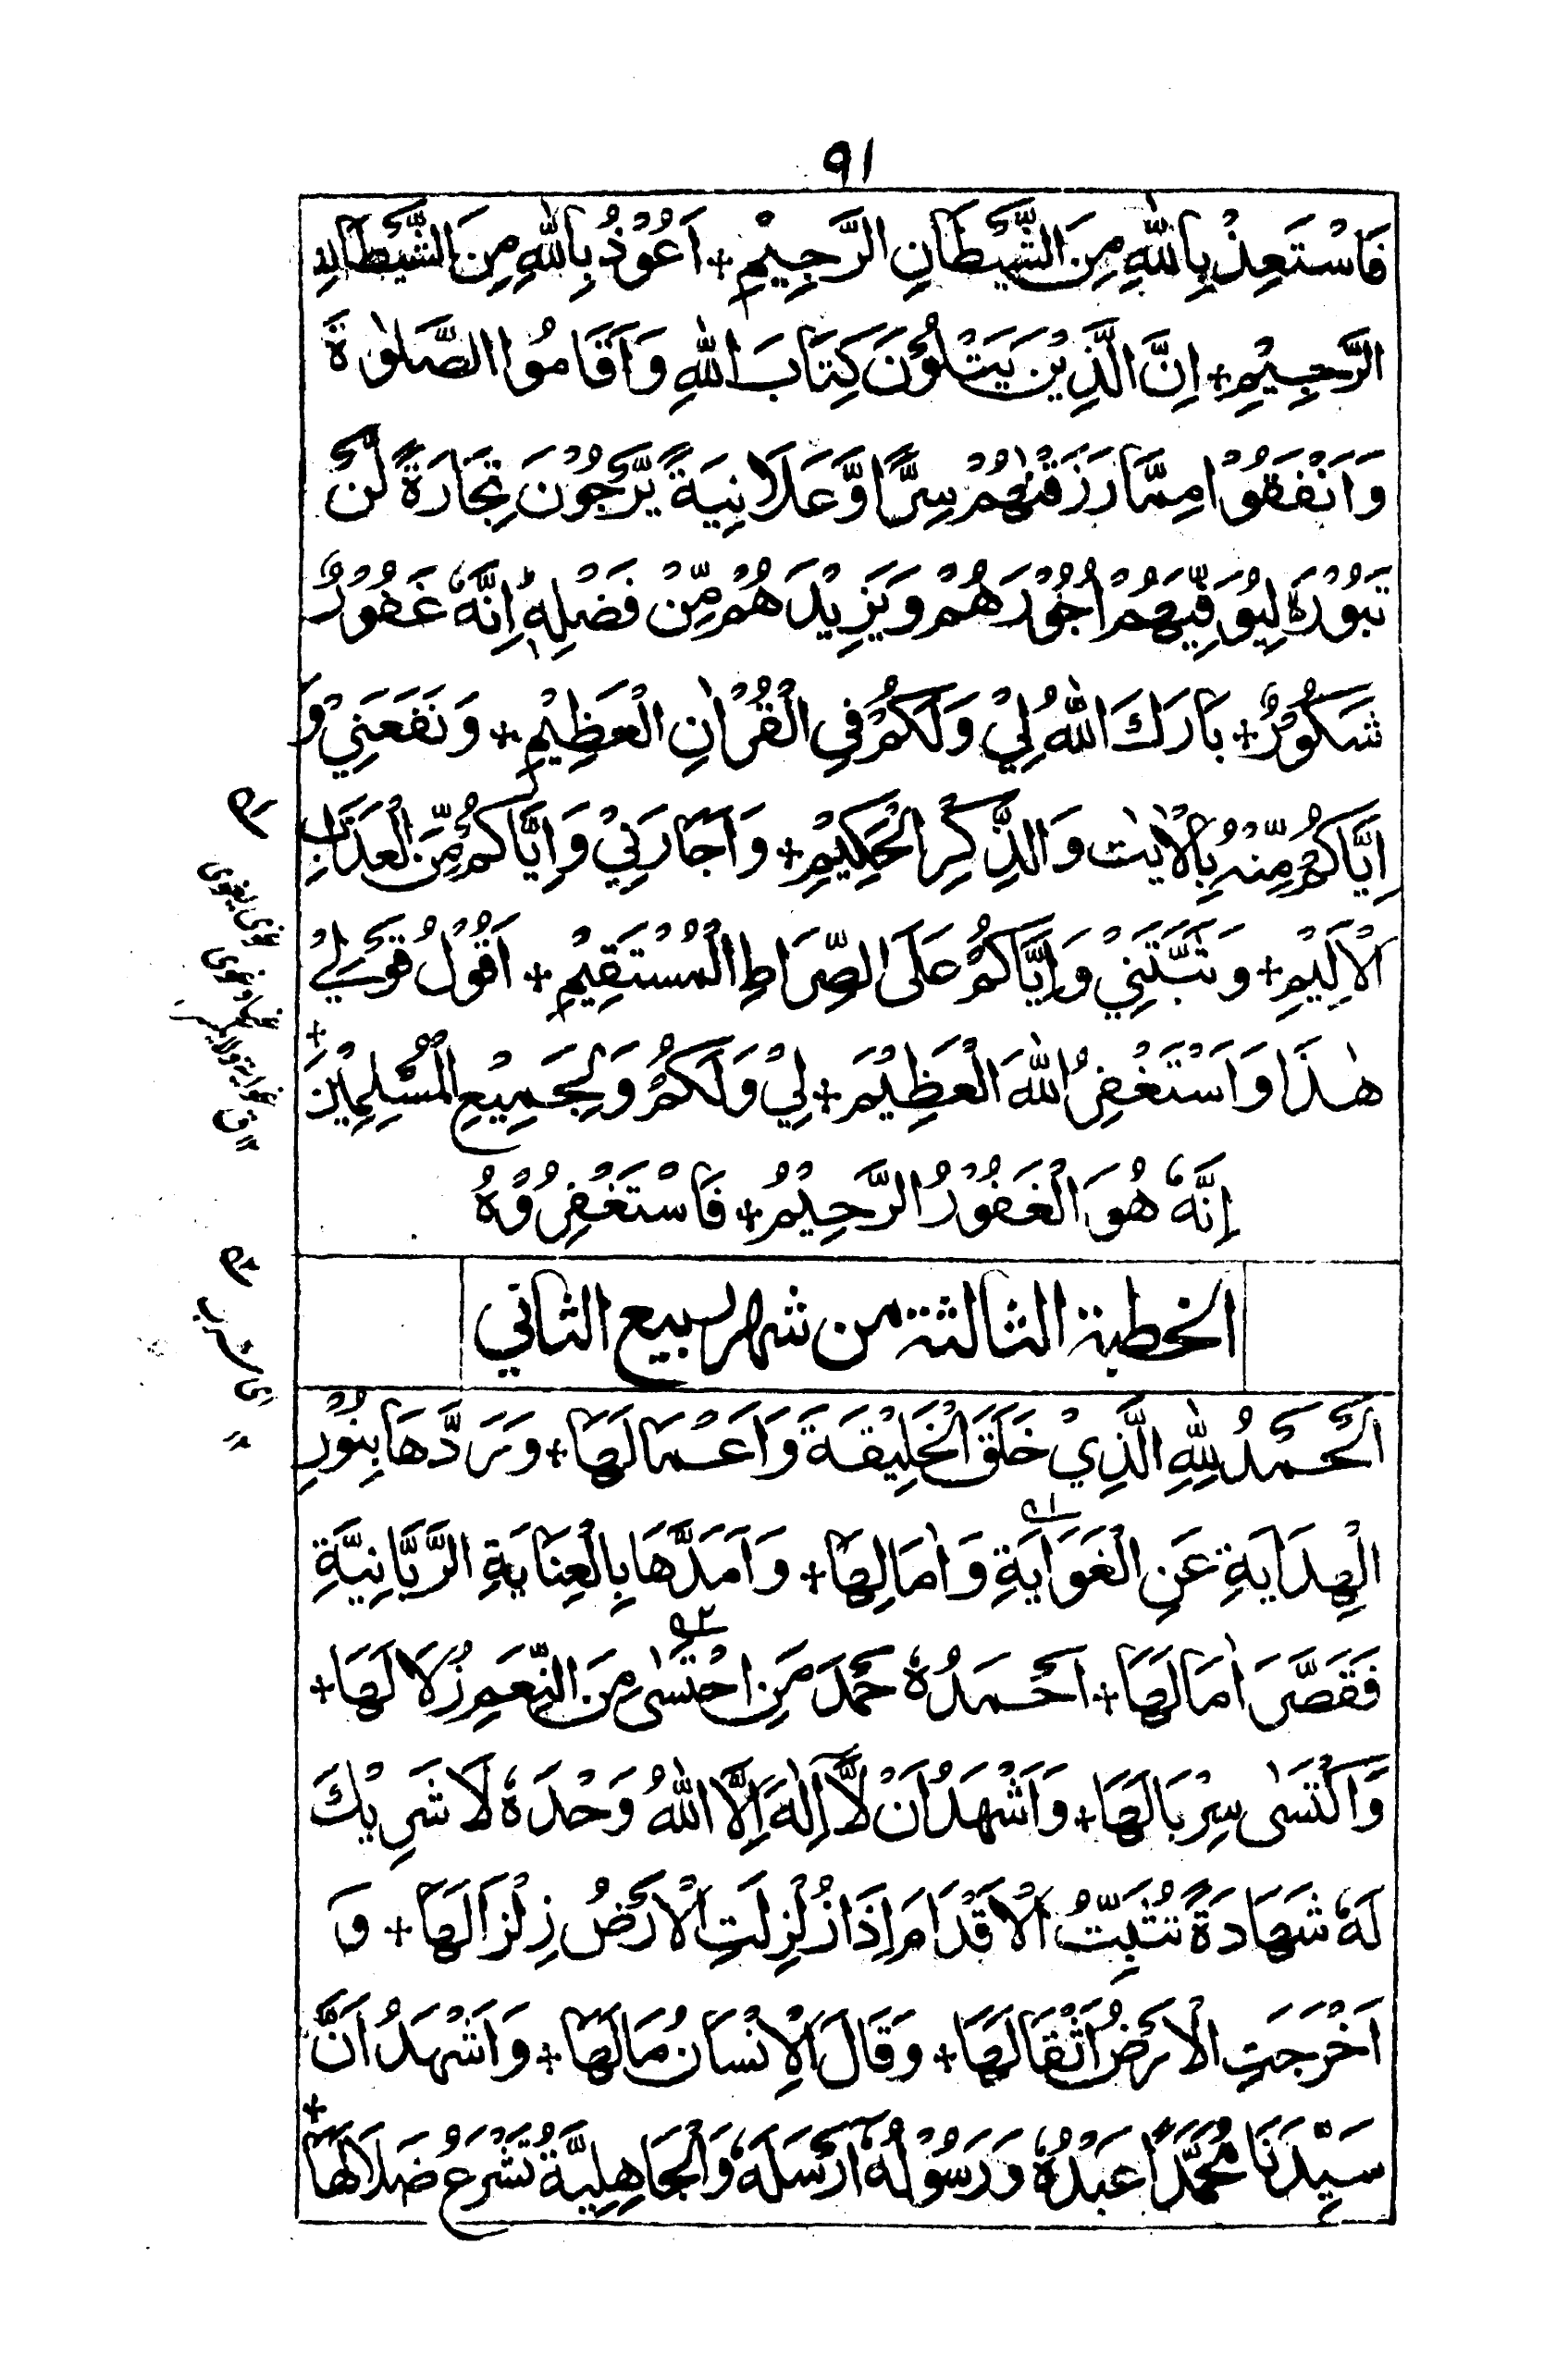 ٩١
فَاسْتَعِذْ بِاللّٰهِ مِنَ الشَّيْطَانِ الرَّجِيْمِ + اَعُوْذُ بِاللّٰهِ مِنَ الشَّيْطَانِ
الرَّجِيْمِ + اِنَّ الَّذِيْنَ يَتْلُوْنَ كِتَابَ اللّٰهِ وَاَقَامُوا الصَّلٰوةَ
وَاَنْفَقُوْا مِمَّا رَزَقْنٰهُمْ سِرًّا وَّعَلَانِيَةً يَّرْجُوْنَ تِجَارَةً لَّنْ
تَبُوْرَ ہ لِيُوَفِّيَهُمْ اُجُوْرَهُمْ وَيَزِيْدَهُمْ مِّنْ فَضْلِهٖ ط اِنَّهٗ غَفُوْرٌ
شَكُوْرٌ + بَارَكَ اللّٰهُ لِيْ وَلَكُمْ فِي الْقُرْاٰنِ الْعَظِيْمِ + وَنَفَعَنِيْ وَ
اِيَّاكُمْ مِّنْهُ بِالْاٰيٰتِ وَالذِّكْرِ الْحَكِيْمِ + وَاَجَارَنِيْ وَاِيَّاكُمْ مِّنَ الْعَذَابِ
الْاَلِيْمِ + وَثَبَّتَنِيْ وَاِيَّاكُمْ عَلَى الصِّرَاطِ الْمُسْتَقِيْمِ + اَقُوْلُ قَوْلِيْ
هٰذَا وَاَسْتَغْفِرُ اللّٰهَ الْعَظِيْمَ + لِيْ وَلَكُمْ وَلِجَمِيْعِ الْمُسْلِمِيْنَ +
اِنَّهٗ هُوَ الْغَفُوْرُ الرَّحِيْمُ + فَاسْتَغْفِرُوْهُ
الخطبة الثالثة من شهر ربيع الثاني
اَلْحَمْدُ لِلّٰهِ الَّذِيْ خَلَقَ الْخَلِيْقَةَ وَاَعْمَالَهَا + وَرَدَّهَا بِنُوْرِ
الْهِدَايَةِ عَنِ الْغَوَايَةِ وَاٰمَالِهَا + وَاَمَدَّهَا بِالْعِنَايَةِ الرَّبَّانِيَّةِ
فَقَصَّرَ اٰمَالَهَا + اَحْمَدُهٗ حَمْدَ مَنِ احْتَسٰى مِنَ النِّعَمِ زُلَالَهَا +
وَاكْتَسٰى سِرْبَالَهَا + وَاَشْهَدُ اَنْ لَّا اِلٰهَ اِلَّا اللّٰهُ وَحْدَهٗ لَا شَرِيْكَ
لَهٗ شَهَادَةً تُثَبِّتُ الْاَقْدَامَ اِذَا زُلْزِلَتِ الْاَرْضُ زِلْزَالَهَا + وَ
اَخْرَجَتِ الْاَرْضُ اَثْقَالَهَا + وَقَالَ الْاِنْسَانُ مَالَهَا + وَاَشْهَدُ اَنَّ
سَيِّدَنَا مُحَمَّدًا عَبْدُهٗ وَرَسُوْلُهٗ اَرْسَلَهٗ وَالْجَاهِلِيَّةُ تَشْرَعُ ضَلَالَهَا +